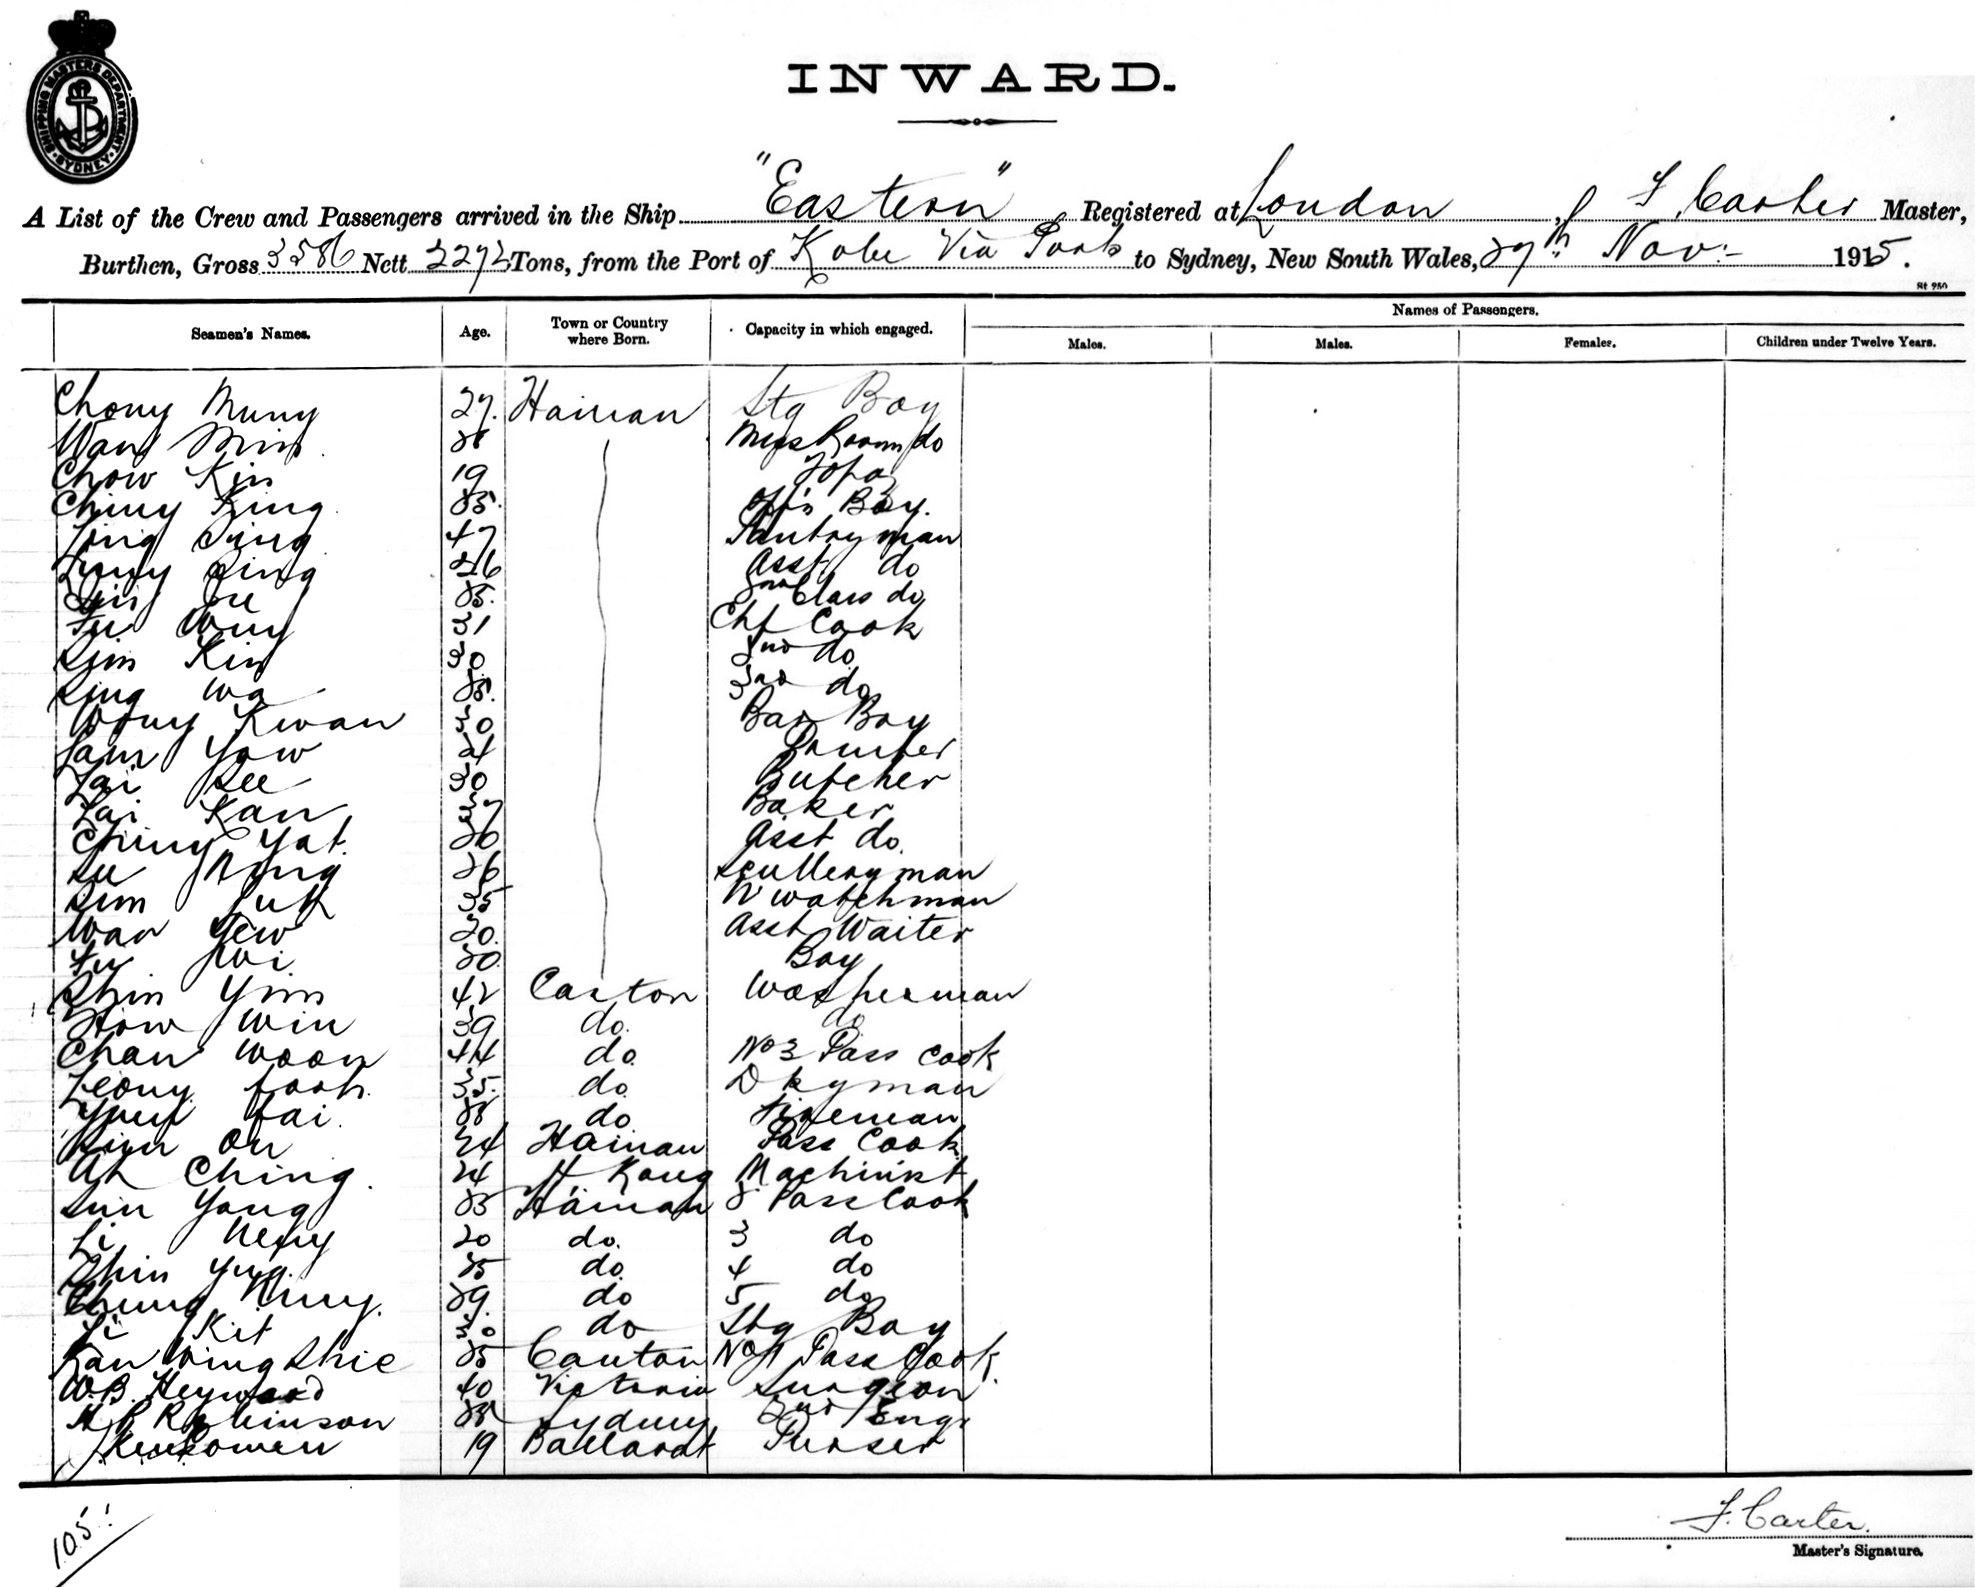 SHIPPING MASTERS DEPARTMENT
SYDNEY
INWARD.
A List of the Crew and Passengers arrived in the Ship "Eastern" Registered at London, of F. Carter Master,
Burthen, Gross 3586 Nett 2272 Tons, from the Port of Kobe Via Ports to Sydney, New South Wales, 27th Nov:- 1915.
St 250
Names of Passengers.
Seamen's Names. Age. Town or Country where Born. Capacity in which engaged. Males. Males. Females. Children under Twelve Years.
Chong Mung 27. Hainan Stg Boy
Wan Min Mess Room do
Chow Kin 19 Topaz
Ching King 25. Off's Boy.
Ting Sing 47 Pantryman
Ling 26 Asst do
25. 2nd Class do
Fu Wing 31 Chf Cook
Lim Kin 30 2nd do
Ling Wa 3rd do
Wong Kwan 30 Bar Boy
Sam Yow 24 Printer
Lai See 30 Butcher
Lai Kan 37 Baker
Ching Yat. 20 Asst do.
Su Ning 26 Sculleryman
Lim Tuk 35 N watchman
Wan Yew 20. Asst Waiter
Fu Wi 20 Boy
Shin Yim 42 Canton Washerman
How Win 39 do. do
Chan Woon 44 do No 3 Pass Cook
Leong Fook 35. do Dkyman
Yout Tai. do Fireman
Lim On 24 Hainan Pass Cook
Ah Ching. 24 H. Kong Machinist
Lun Yong 25 Hainan 2 Pass Cook
Li Neng 20 do. 3 do
Shin Yug 25 do 4 do
Chung Ning. 29. do 5 do
Li Kit 30 do Stg Boy
Kan Wing Shie 25 Canton No 1 Pass Cook.
W.B. Heyward 40 Victoria Surgeon
Robinson Sydney 2nd Engr
19 Ballarat Purser
105!
F. Carter.
Master's Signature.